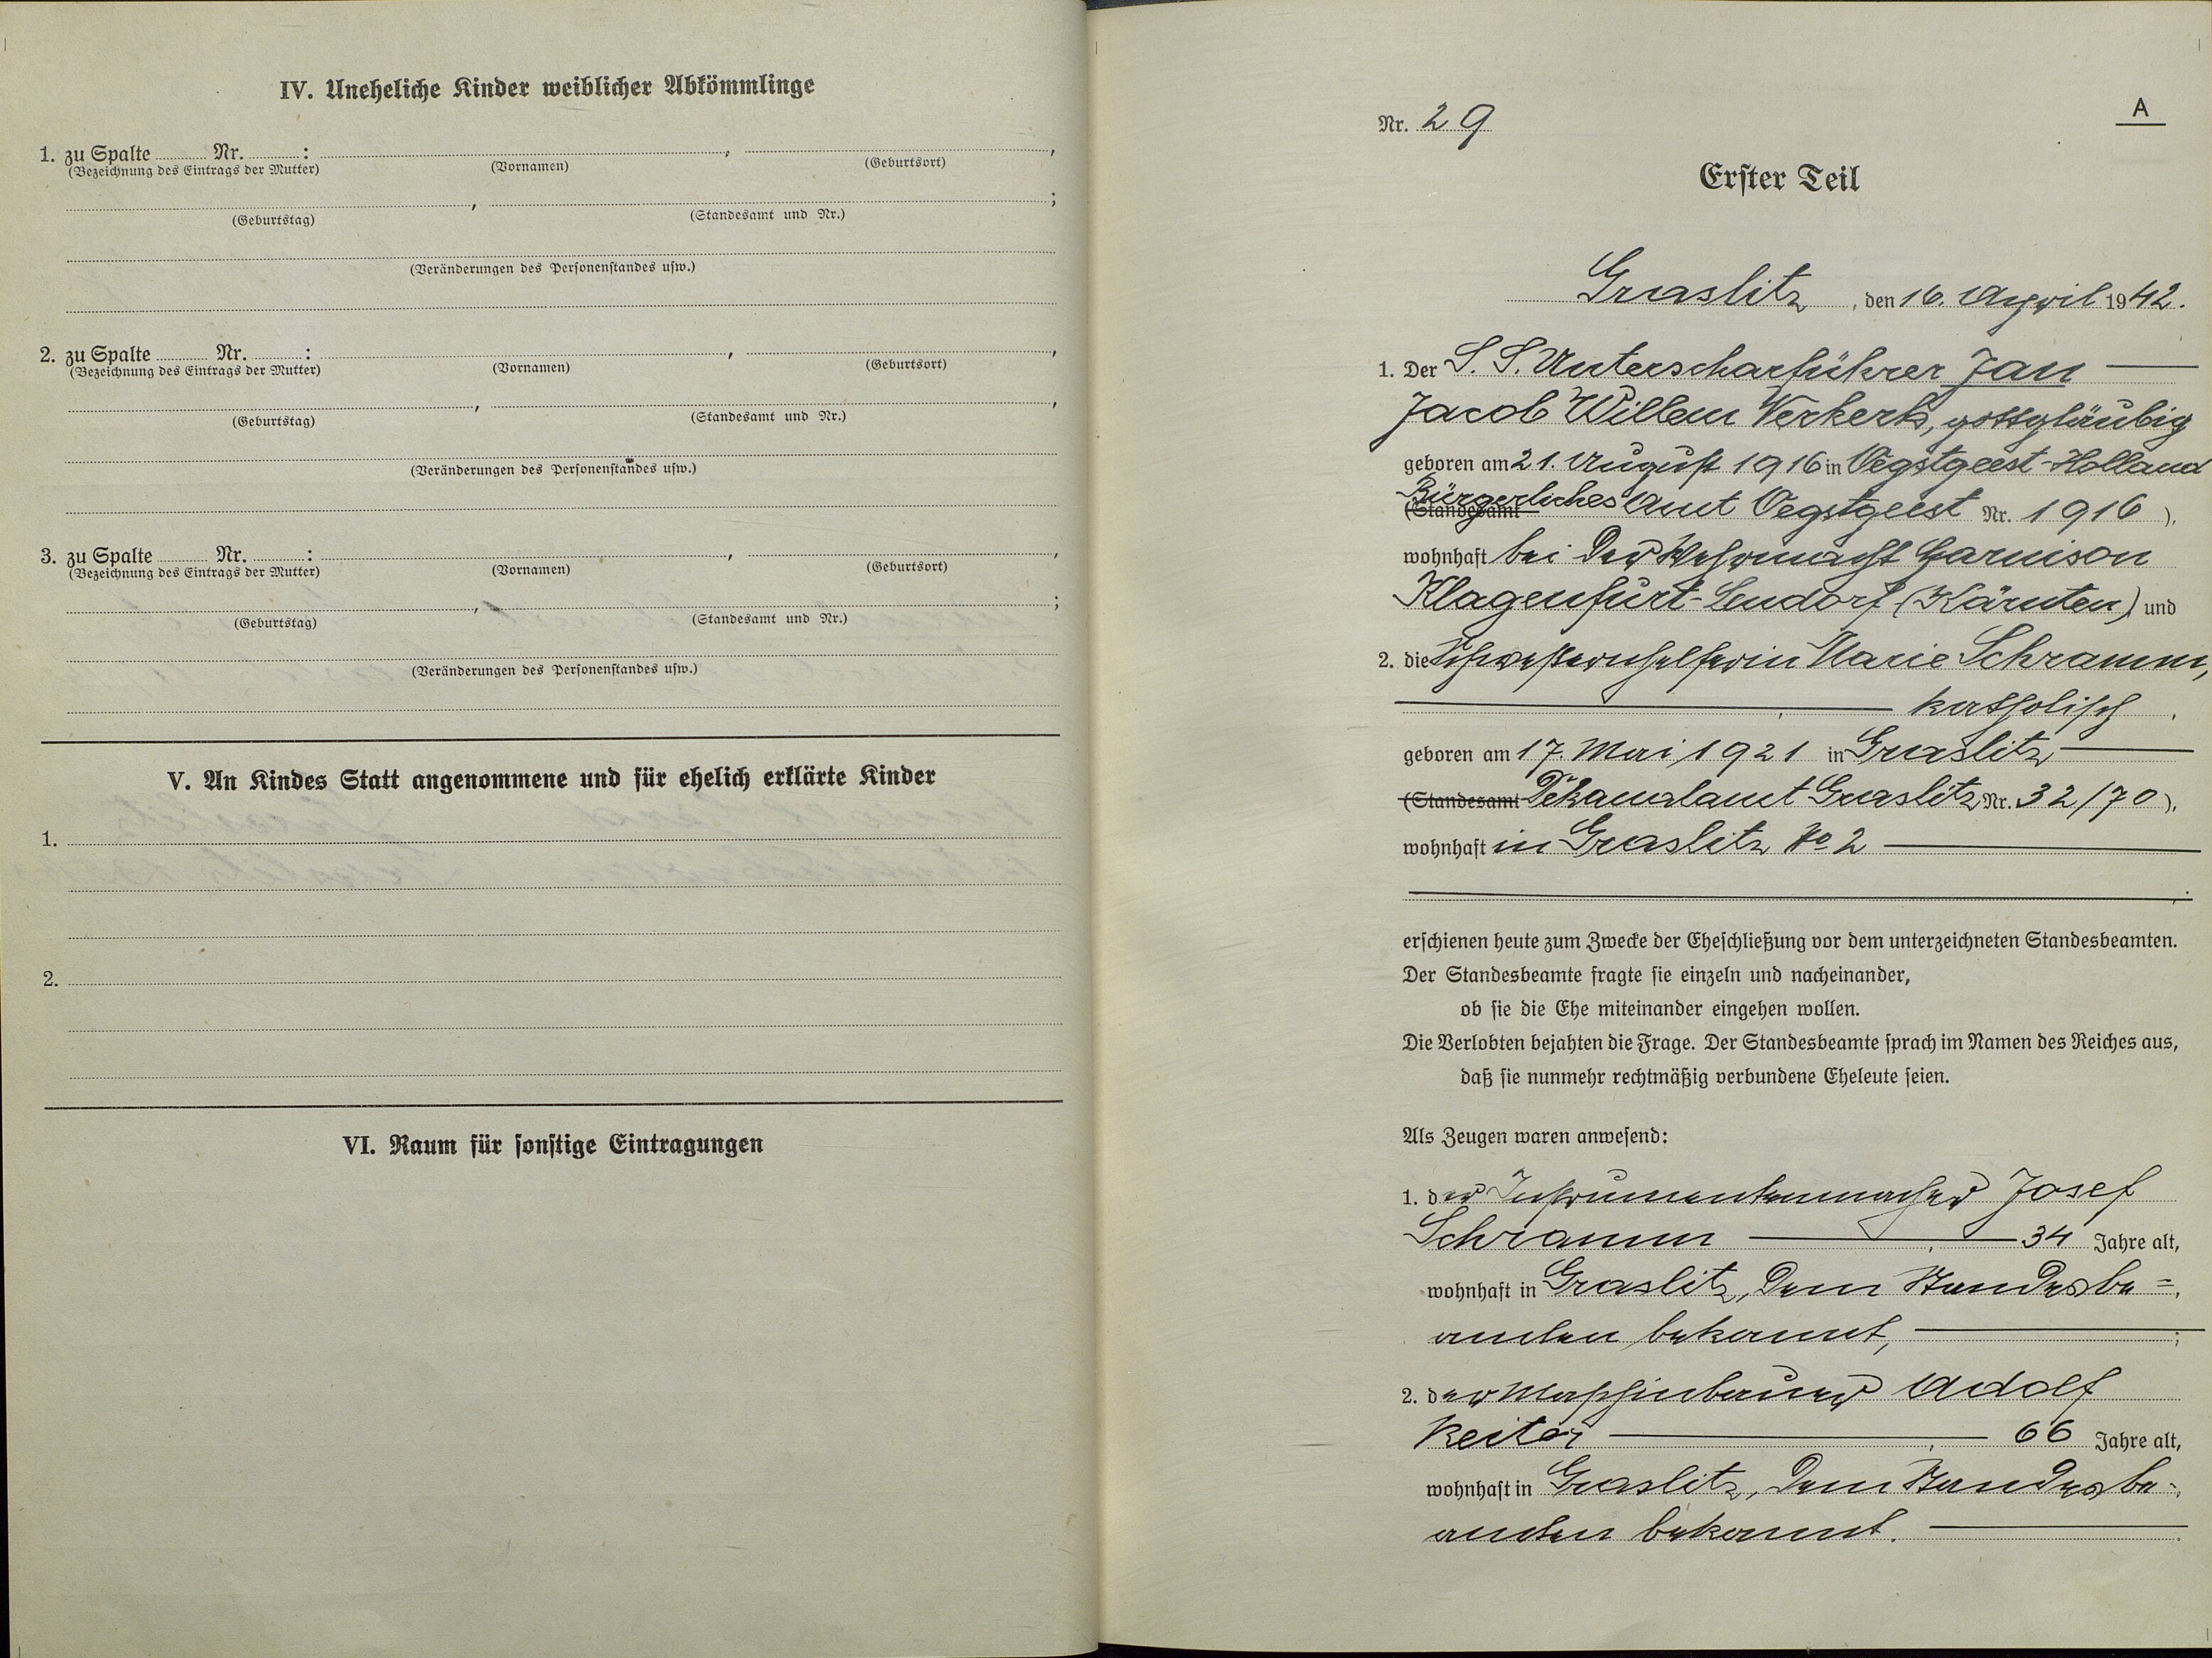 IV. Uneheliche Kinder weiblicher Abkömmlinge
1. zu Spalte ........ Nr. ........ : ........ , ........ ,
(Bezeichnung des Eintrags der Mutter) (Vornamen) (Geburtsort)
........ , ........ ;
(Geburtstag) (Standesamt und Nr.)
(Veränderungen des Personenstandes usw.)
2. zu Spalte ........ Nr. ........ : ........ , ........ ,
(Bezeichnung des Eintrags der Mutter) (Vornamen) (Geburtsort)
........ , ........ ,
(Geburtstag) (Standesamt und Nr.)
(Veränderungen des Personenstandes usw.)
3. zu Spalte ........ Nr. ........ : ........ , ........ ,
(Bezeichnung des Eintrags der Mutter) (Vornamen) (Geburtsort)
........ , ........ ;
(Geburtstag) (Standesamt und Nr.)
(Veränderungen des Personenstandes usw.)
V. An Kindes Statt angenommene und für ehelich erklärte Kinder
1.
2.
VI. Raum für sonstige Eintragungen
A
Nr. 29
Erster Teil
Graslitz, den 16. April 1942.
1. Der S.S. Unterscharführer Jan
Jacob Willem Verkerk, gottgläubig
geboren am 21. August 1916 in Oegstgeest-Holland
Bürgerliches
(Standesamt Amt Oegstgeest Nr. 1916 ),
wohnhaft bei der Wehrmacht Garnison
Klagenfurt-Lendorf (Kärnten) und
2. die Schwesternhelferin Marie Schramm,
katholisch ,
geboren am 17. Mai 1921 in Graslitz
(Standesamt Dekanalamt Graslitz Nr. 32/70 ),
wohnhaft in Graslitz No 2
erschienen heute zum Zwecke der Eheschließung vor dem unterzeichneten Standesbeamten.
Der Standesbeamte fragte sie einzeln und nacheinander,
ob sie die Ehe miteinander eingehen wollen.
Die Verlobten bejahten die Frage. Der Standesbeamte sprach im Namen des Reiches aus,
daß sie nunmehr rechtmäßig verbundene Eheleute seien.
Als Zeugen waren anwesend:
1. der Instrumentenmacher Josef
Schramm , 34 Jahre alt,
wohnhaft in Graslitz, dem Standesbe=
amten bekannt, ;
2. der Maschinbauer Adolf
Reiter , 66 Jahre alt,
wohnhaft in Graslitz, dem Standesbe-
amten bekannt.